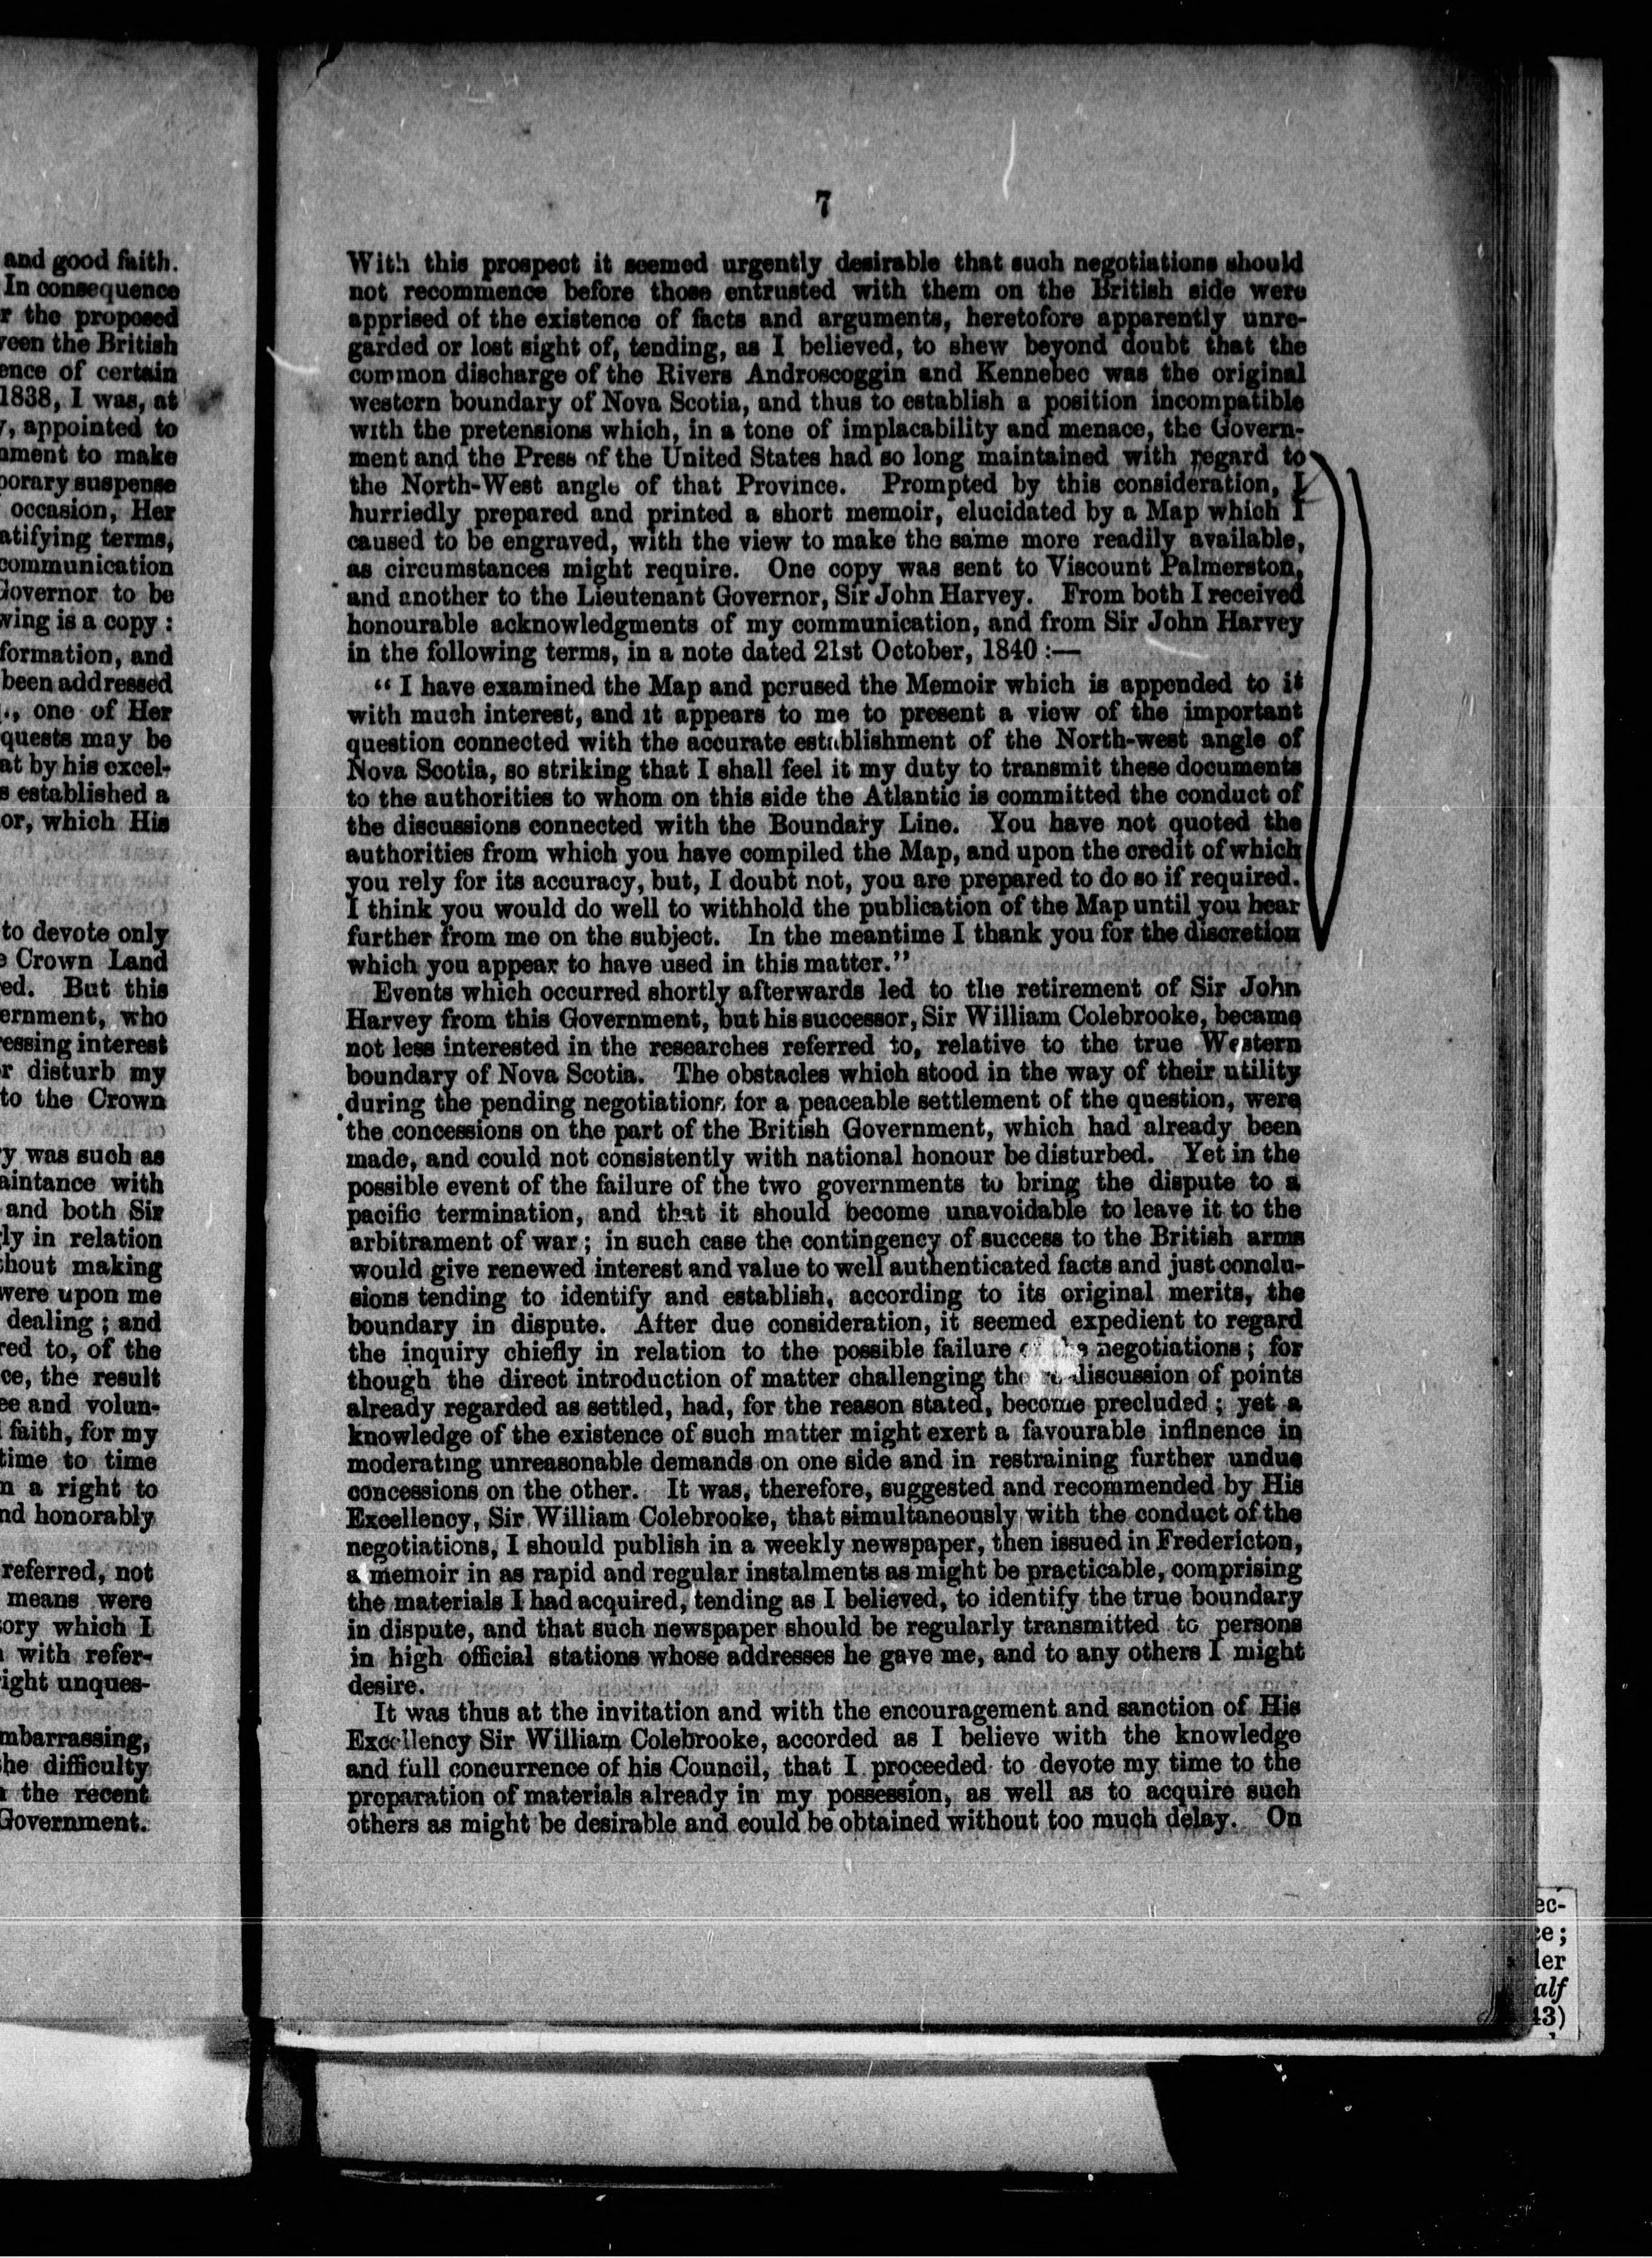 and good faith.
In consequence
r the proposed
veen the British
ence of certain
1838, I was, at
, appointed to
nment to make
porary suspense
occasion, Her
atifying terms,
communication
Governor to be
wing is a copy:
formation, and
been addressed
., one of Her
quests may be
at by his excel-
s established a
or, which His
to devote only
Crown Land
ed. But this
ernment, who
essing interest
r disturb my
to the Crown
y was such as
aintance with
and both Sir
ly in relation
hout making
were upon me
dealing; and
red to, of the
ce, the result
ee and volun-
faith, for my
time to time
n a right to
nd honorably
referred, not
means were
ory which I
with refer-
ight unques-
mbarrassing,
he difficulty
the recent
Government.
7
With this prospect it seemed urgently desirable that such negotiations should
not recommence before those entrusted with them on the British side were
apprised of the existence of facts and arguments, heretofore apparently unre-
garded or lost sight of, tending, as I believed, to shew beyond doubt that the
common discharge of the Rivers Androscoggin and Kennebec was the original
western boundary of Nova Scotia, and thus to establish a position incompatible
with the pretensions which, in a tone of implacability and menace, the Govern-
ment and the Press of the United States had so long maintained with regard to
the North-West angle of that Province. Prompted by this consideration, I
hurriedly prepared and printed a short memoir, elucidated by a Map which I
caused to be engraved, with the view to make the same more readily available,
as circumstances might require. One copy was sent to Viscount Palmerston,
and another to the Lieutenant Governor, Sir John Harvey. From both I received
honourable acknowledgments of my communication, and from Sir John Harvey
in the following terms, in a note dated 21st October, 1840:—
"I have examined the Map and perused the Memoir which is appended to it
with much interest, and it appears to me to present a view of the important
question connected with the accurate establishment of the North-west angle of
Nova Scotia, so striking that I shall feel it my duty to transmit these documents
to the authorities to whom on this side the Atlantic is committed the conduct of
the discussions connected with the Boundary Line. You have not quoted the
authorities from which you have compiled the Map, and upon the credit of which
you rely for its accuracy, but, I doubt not, you are prepared to do so if required.
I think you would do well to withhold the publication of the Map until you hear
further from me on the subject. In the meantime I thank you for the discretion
which you appear to have used in this matter."
Events which occurred shortly afterwards led to the retirement of Sir John
Harvey from this Government, but his successor, Sir William Colebrooke, became
not less interested in the researches referred to, relative to the true Western
boundary of Nova Scotia. The obstacles which stood in the way of their utility
during the pending negotiations for a peaceable settlement of the question, were
the concessions on the part of the British Government, which had already been
made, and could not consistently with national honour be disturbed. Yet in the
possible event of the failure of the two governments to bring the dispute to a
pacific termination, and that it should become unavoidable to leave it to the
arbitrament of war; in such case the contingency of success to the British arms
would give renewed interest and value to well authenticated facts and just conclu-
sions tending to identify and establish, according to its original merits, the
boundary in dispute. After due consideration, it seemed expedient to regard
the inquiry chiefly in relation to the possible failure of the negotiations; for
though the direct introduction of matter challenging the re-discussion of points
already regarded as settled, had, for the reason stated, become precluded; yet a
knowledge of the existence of such matter might exert a favourable inflnence in
moderating unreasonable demands on one side and in restraining further undue
concessions on the other. It was, therefore, suggested and recommended by His
Excellency, Sir William Colebrooke, that simultaneously with the conduct of the
negotiations, I should publish in a weekly newspaper, then issued in Fredericton,
a memoir in as rapid and regular instalments as might be practicable, comprising
the materials I had acquired, tending as I believed, to identify the true boundary
in dispute, and that such newspaper should be regularly transmitted to persons
in high official stations whose addresses he gave me, and to any others I might
desire.
It was thus at the invitation and with the encouragement and sanction of His
Excellency Sir William Colebrooke, accorded as I believe with the knowledge
and full concurrence of his Council, that I proceeded to devote my time to the
preparation of materials already in my possession, as well as to acquire such
others as might be desirable and could be obtained without too much delay. On
ec-
ce;
ler
alf
43)